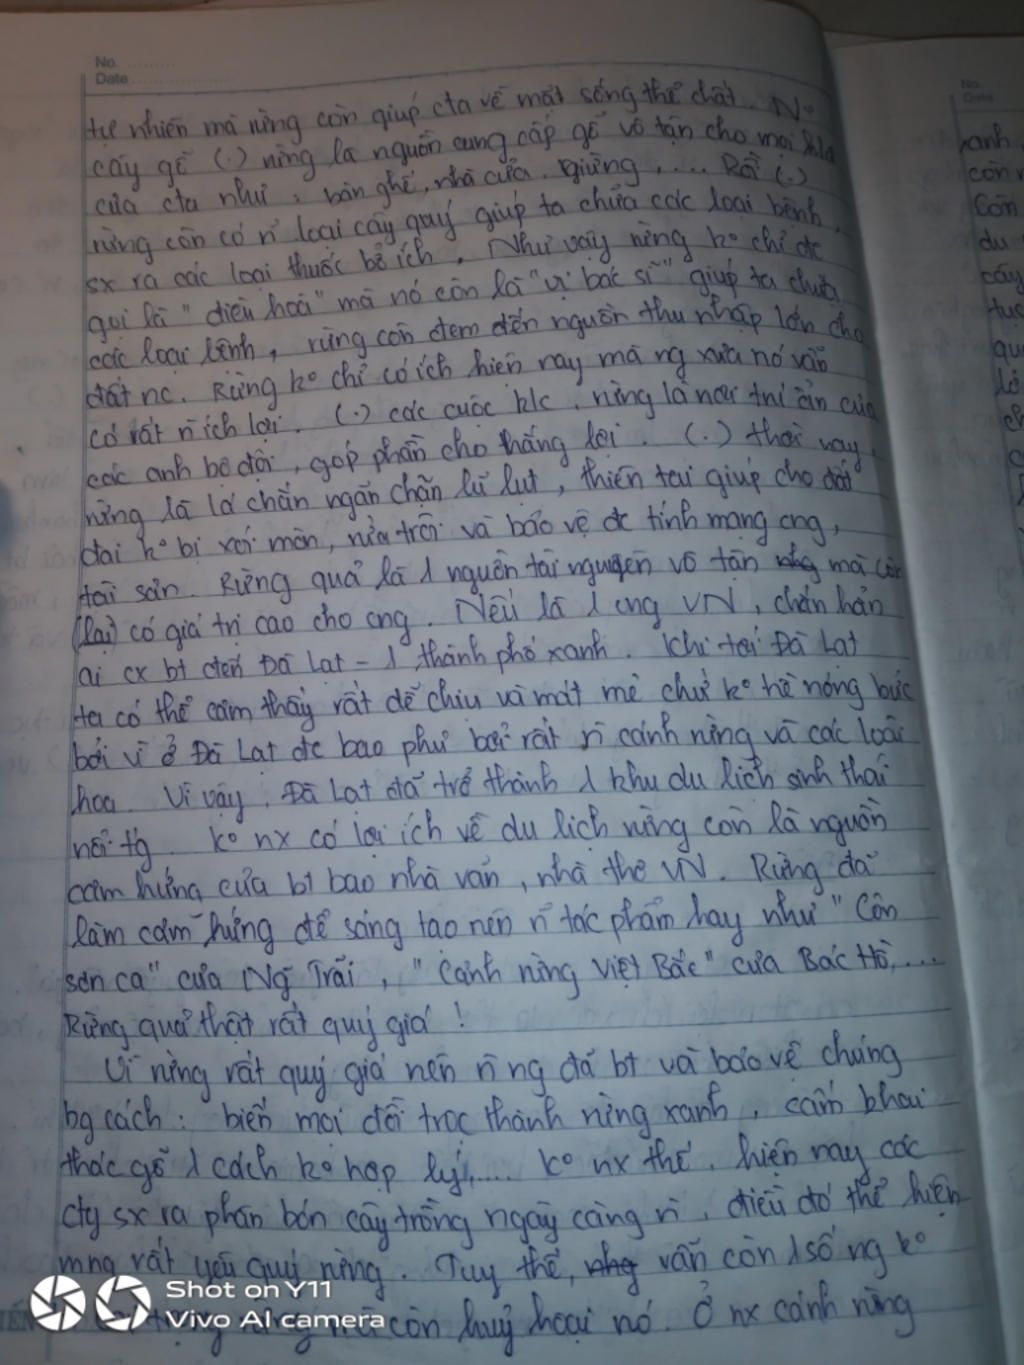 No.
Date
tự nhiên mà rừng còn giúp cta về mặt sống thể chất. Nº
cây gỗ (.) rừng là nguồn cung cấp gỗ vô tận cho mọi
của cta như: bàn ghế, nhà cửa, giường, .... Rồi (.)
rừng còn có n̄ loại cây quý giúp ta chữa các loại bệnh,
sx ra các loại thuốc bổ ích. Như vậy rừng kº chỉ đc
gọi là "điều hoà" mà nó còn là "vị bác sĩ" giúp ta chữa
các loại bệnh, rừng còn đem đến nguồn thu nhập lớn cho
đất nc. Rừng kº chỉ có ích hiện nay mà ng xưa nó vẫn
có rất n̄ ích lợi. (.) các cuộc k/c, rừng là nơi trú ẩn của
các anh bộ đội, góp phần cho thắng lợi (.) thời nay,
rừng là lá chắn ngăn chặn lũ lụt, thiên tai giúp cho đất
đai kº bị xói mòn, rửa trôi và bảo vệ đc tính mạng cng,
tài sản. Rừng quả là 1 nguồn tài nguyên vô tận nhg mà còn
(lại) có giá trị cao cho cng. Nếu là 1 cng VN, chắn hẳn
ai cx bt đến Đà Lạt - 1 thành phố xanh. Khi tới Đà Lạt
ta có thể cảm thấy rất dễ chịu và mát mẻ chứ kº hề nóng bức
bởi vì ở Đà Lạt đc bao phủ bởi rất n̄ cánh rừng và các loài
hoa. Vì vậy, Đà Lạt đã trở thành 1 khu du lịch sinh thái
nổi tg. Kº nx có lợi ích về du lịch rừng còn là nguồn
cảm hứng của bt bao nhà văn, nhà thơ VN. Rừng đã
làm cảm hứng để sáng tạo nên n̄ tác phẩm hay như "Côn
sơn ca" của Ng Trãi, "cảnh rừng Việt Bắc" của Bác Hồ,....
Rừng quả thật rất quý giá!
Vì rừng rất quý giá nên n̄ ng đã bt và bảo vệ chúng
bg cách: biến mọi đồi trọc thành rừng xanh, cấm khai
thác gỗ 1 cách kº hợp lý,.... Kº nx thế, hiện nay các
cty sx ra phân bón cây trồng ngày càng n̄, điều đó thể hiện
mng rất yêu quý rừng. Tuy thế, nhg vẫn còn 1 số ng kº
còn huỷ hoại nó. Ở nx cánh rừng
Shot on Y11
Vivo AI camera
No.
Date
anh
còn
Còn
du
cây